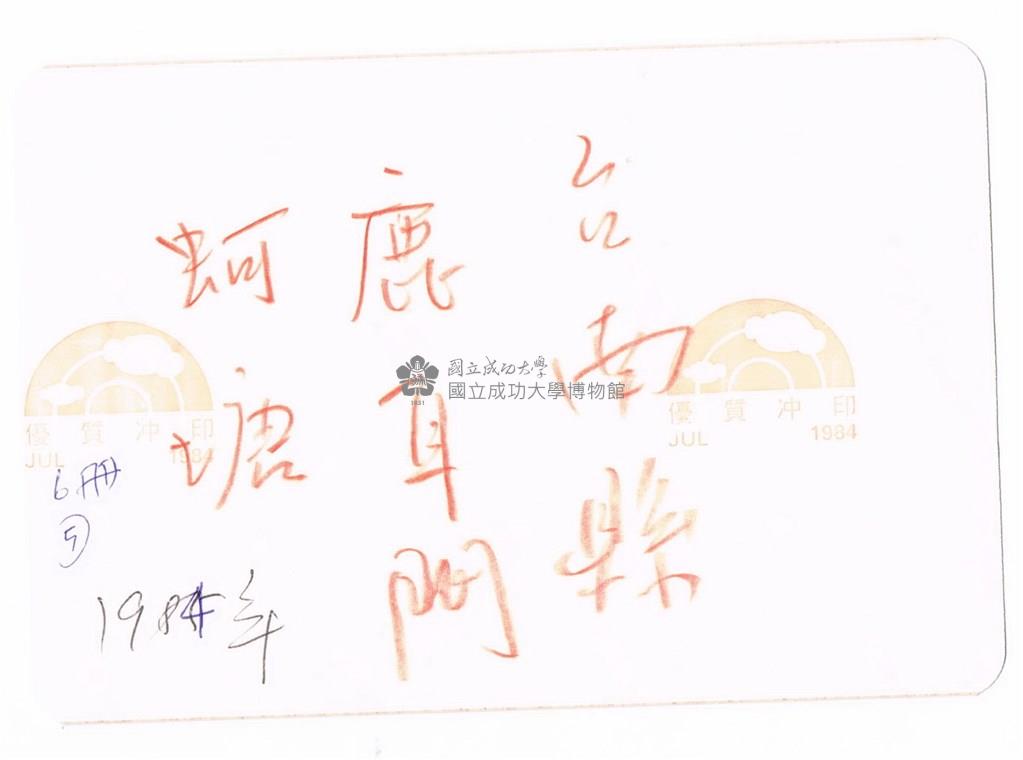 台南縣
鹿耳門
蚵塘
國立成功大學
國立成功大學博物館
1931
優質冲印
JUL 1984
優質冲印
JUL 1984
6冊
⑤
年